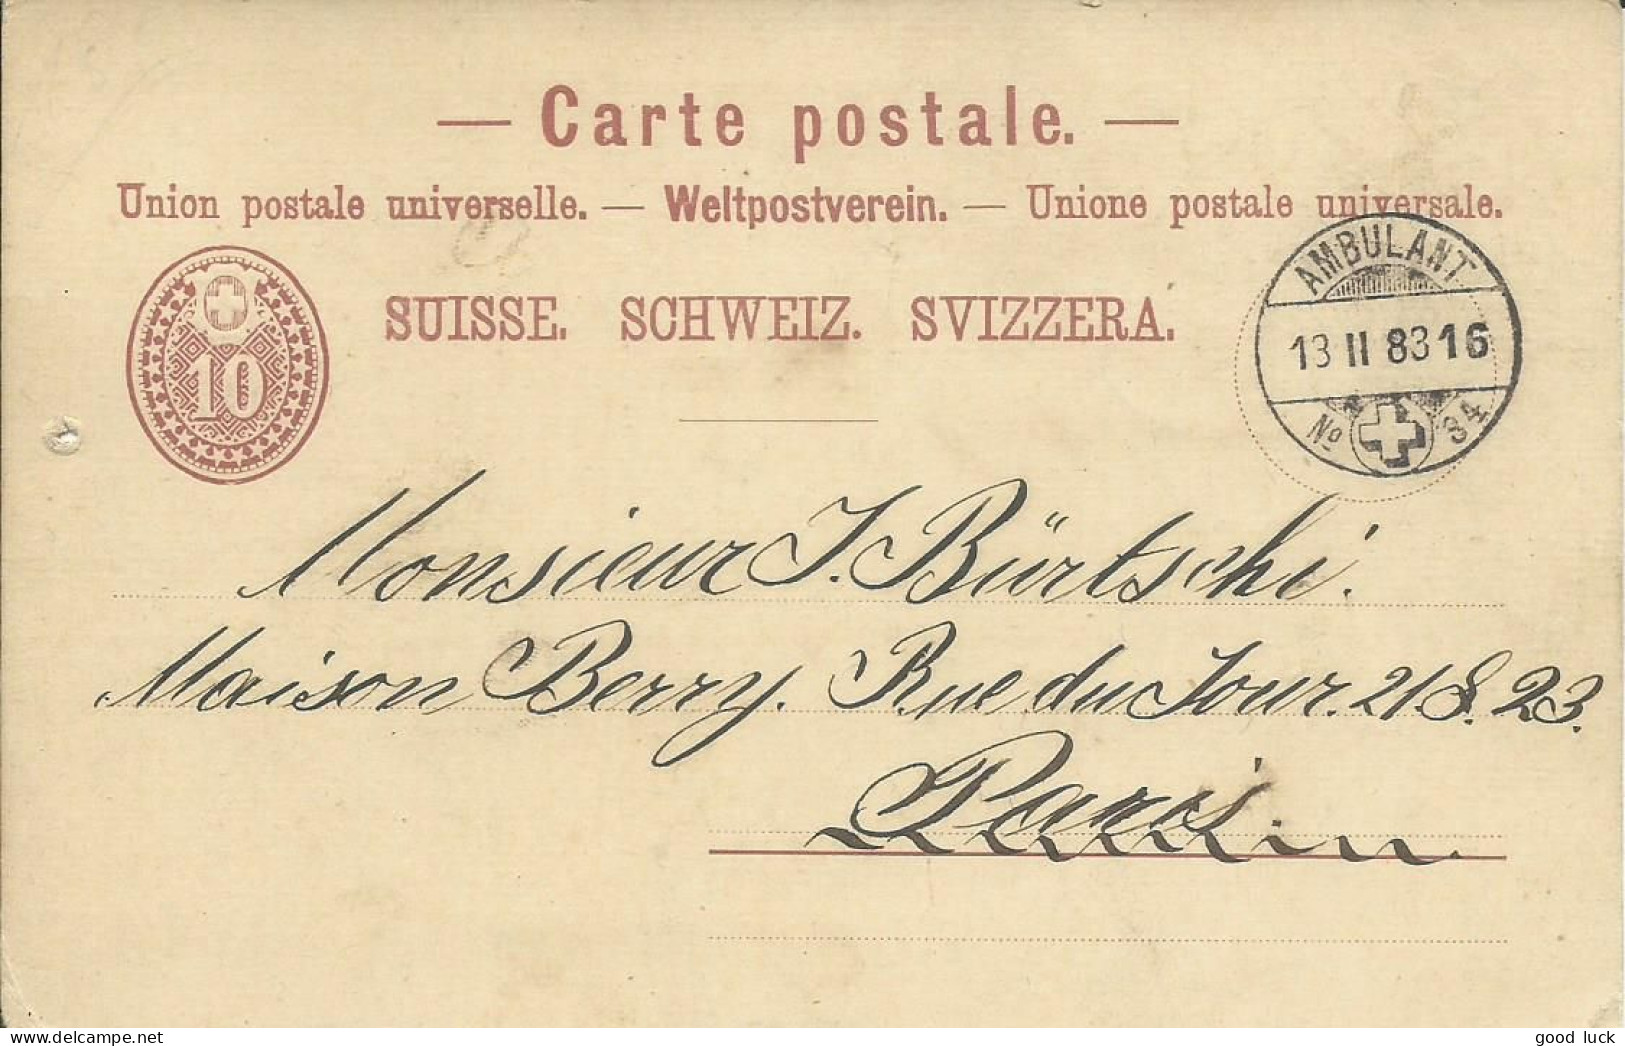 — Carte postale. —
Union postale universelle. — Weltpostverein. — Unione postale universale.
SUISSE. SCHWEIZ. SVIZZERA.
10
AMBULANT
13 II 83 16
No 34
Monsieur J. Bürtschi.
Maison Berry. Rue du Jour. 21 &. 23.
Paris
good luck
www.delcampe.net